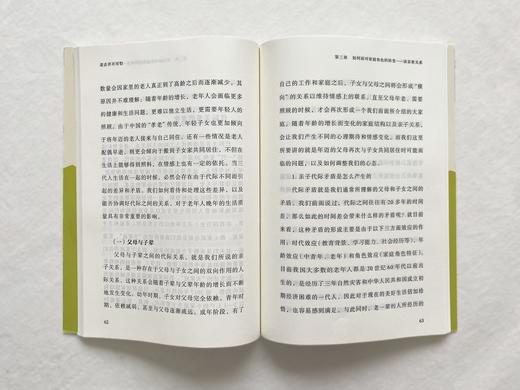 老去并不可怕
数量会因家里的老人真正到了高龄之后而逐渐减少。其
原因并不难理解：随着年龄的增长，老年人会面临更多
的健康和生活问题，更难以独立生活，更需要年轻人的
照顾。由于中国的“孝老”传统，年轻子女也更加倾向
于将年迈的老人接来与自己同住。还有一些情况是老人
配偶早逝，则更会倾向于搬到子女家共同居住，不但在
生活上能够得到照料，在情感上也有一定的依托。当三
代人生活在一起的时候，必然会存在由于代际不同而引
起的差异和矛盾。我们如何看待和处理这些差异，以及
能否协调好代际之间的关系，对于老年人晚年的生活质
量具有非常重要的影响。
（一）父母与子辈
父母与子辈之间的代际关系，就是我们所说的亲
子关系，是一种存在于父母与子女之间的双向作用的人
际关系。这种关系会随着子辈与父辈年龄的增长而不断
地发生变化。幼年时期，子女对父母完全依赖。青年时
期，依赖减弱，甚至与父母逐渐疏远。成年阶段，有了
62
第三章 如何面对家庭角色的转变——谈亲密关系
自己的工作和家庭之后，子女与父母之间将会形成“横
向”的关系以维持情感上的联系。直至父母年老，需要
照顾的时候，才会再次形成一个我们前面所介绍的大家
庭。随着年龄的增长和变化的家庭结构以及亲子关系，
会让我们产生不同的心理期待和情感变化。而我们这里
所要讲的就是将年迈的父母再次与子女共同居住时可能
面临的问题，以及如何调整我们的心态。
亲子代际矛盾是怎么产生的
代际矛盾就是我们通常所理解的父母和子女之间的
矛盾。我们前面说过，代际之间往往有着20年的时间差
距，那么如此的时间差会带来什么样的矛盾呢？就目前
来看，这种矛盾的形成主要由于以下三方面效应的作
用，时代效应（教育背景、学习能力、社会经历等）、年
龄效应（中青年、老年）和角色效应（家庭角色特征）。
目前我国大多数的老年人都是20世纪60年代以前出
生的，是经历了三年自然灾害和中华人民共和国成立初
期经济困难的一代人，因此对于现在的美好生活倍加珍
惜，也容易感到满足。与此同时，老一辈的人所经历的
63